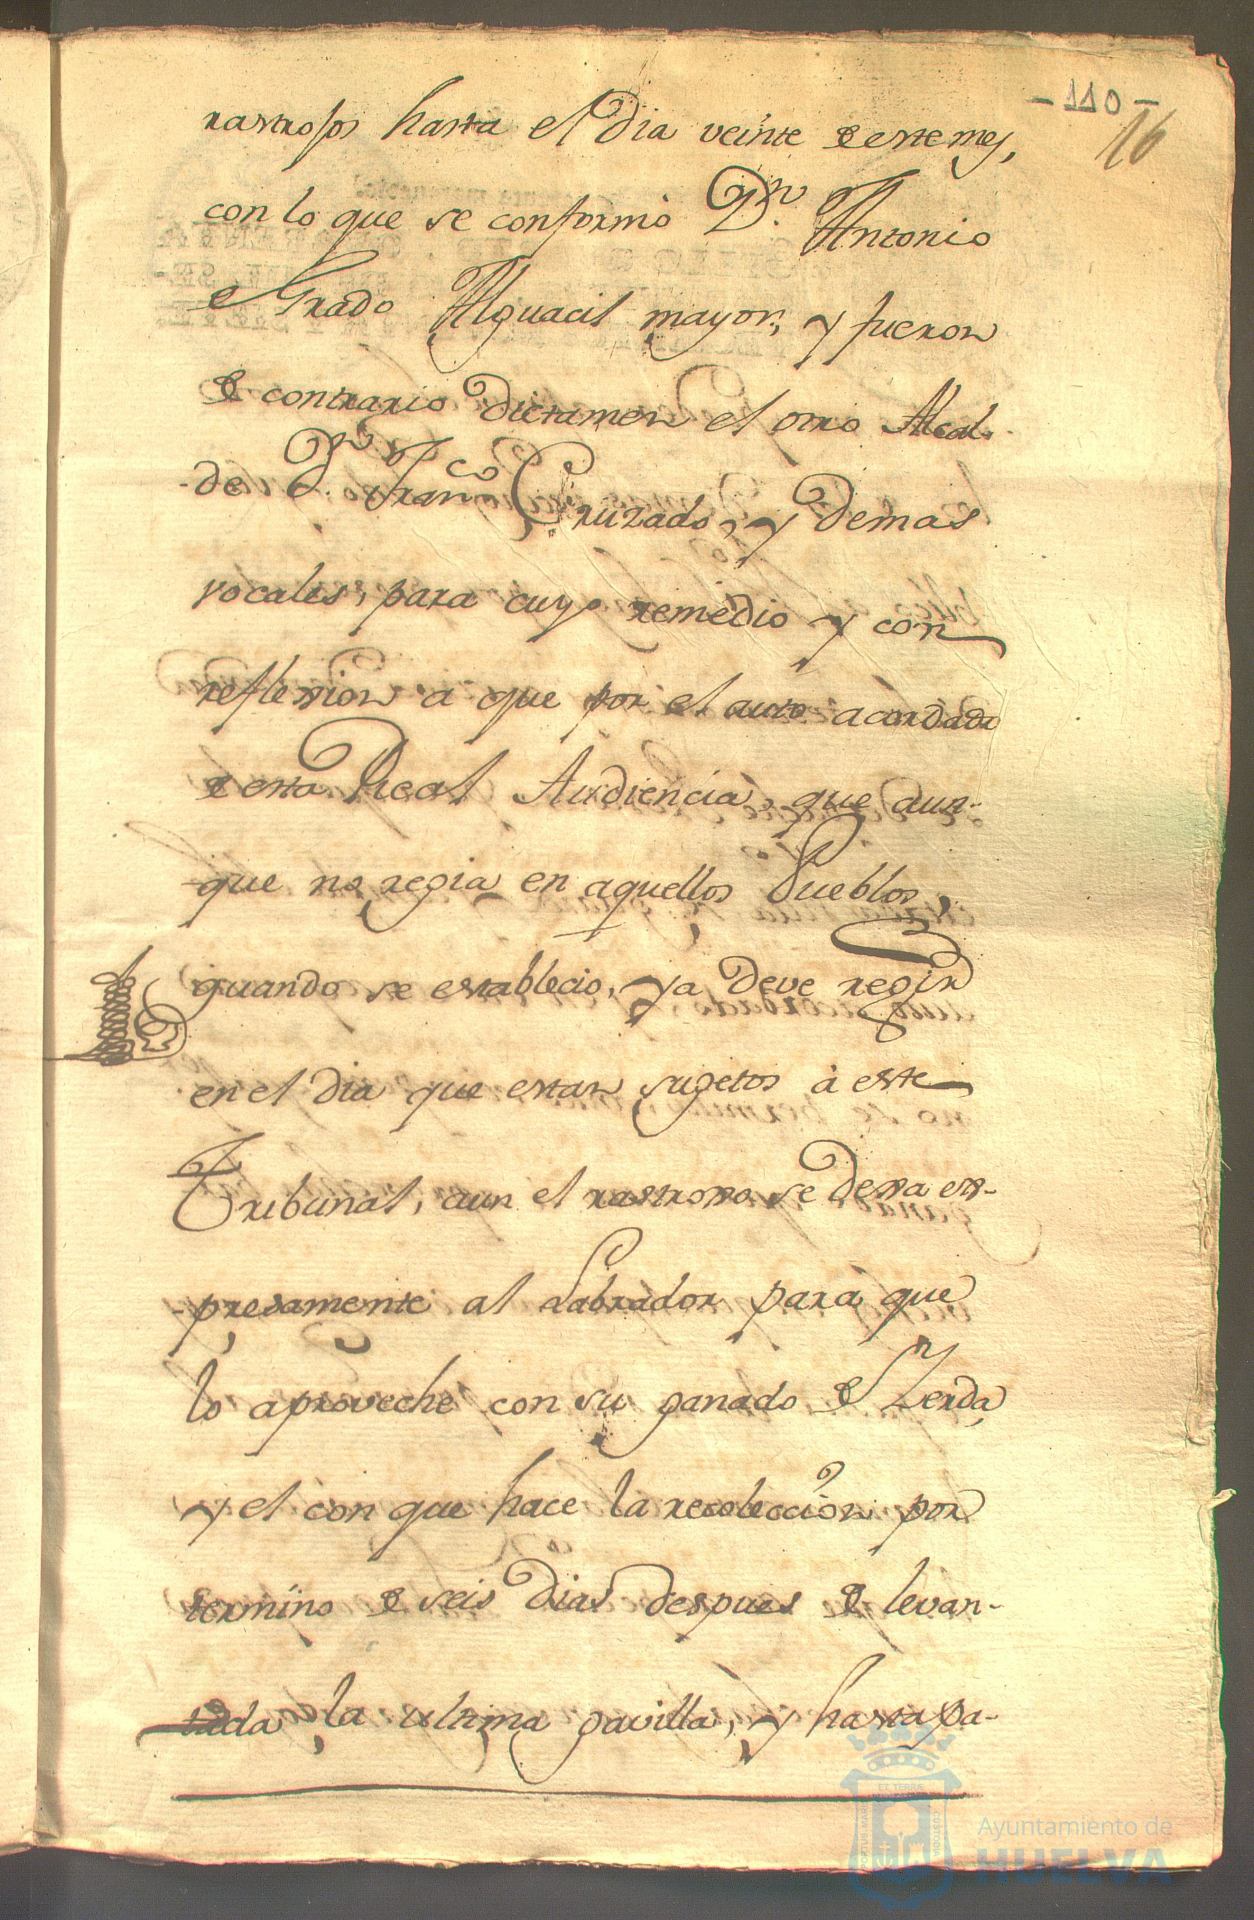 -110-
16
rastrojos hasta el Dia veinte de este mes,
con lo que se conformò Dn. Antonio
el Grado Alguacil mayor, y fueron
de contrario Dictamen el otro Alcal-
-de Dn. Franco. Cruzado, y Demas
vocales, para cuyo remedio y con
reflexion a que por el auto acordado
de esta Real Audiencia, que aun-
-que no regia en aquellos Pueblos,
quando se establecio, ya Deve regir
en el dia que estan sugetos à este
Tribunal, aun el rastrojo se Dexa ex-
-presamente al Labrador para que
lo aproveche con su ganado de Zerda,
y el con que hace la recoleccion por
termino de seis Dias despues de levan-
tada la ultima gavilla, y hasta pa-
Ayuntamiento de
HUELVA